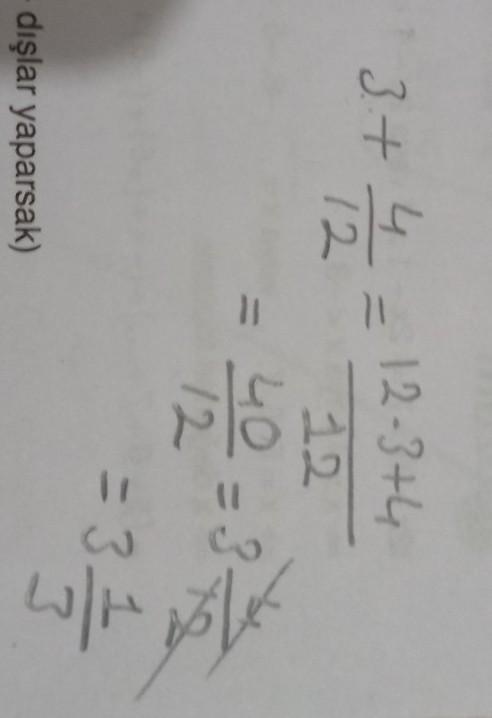 dışlar yaparsak)
3 + 4/12 = 12·3+4/12
= 40/12 = 3 4/12
= 3 1/3